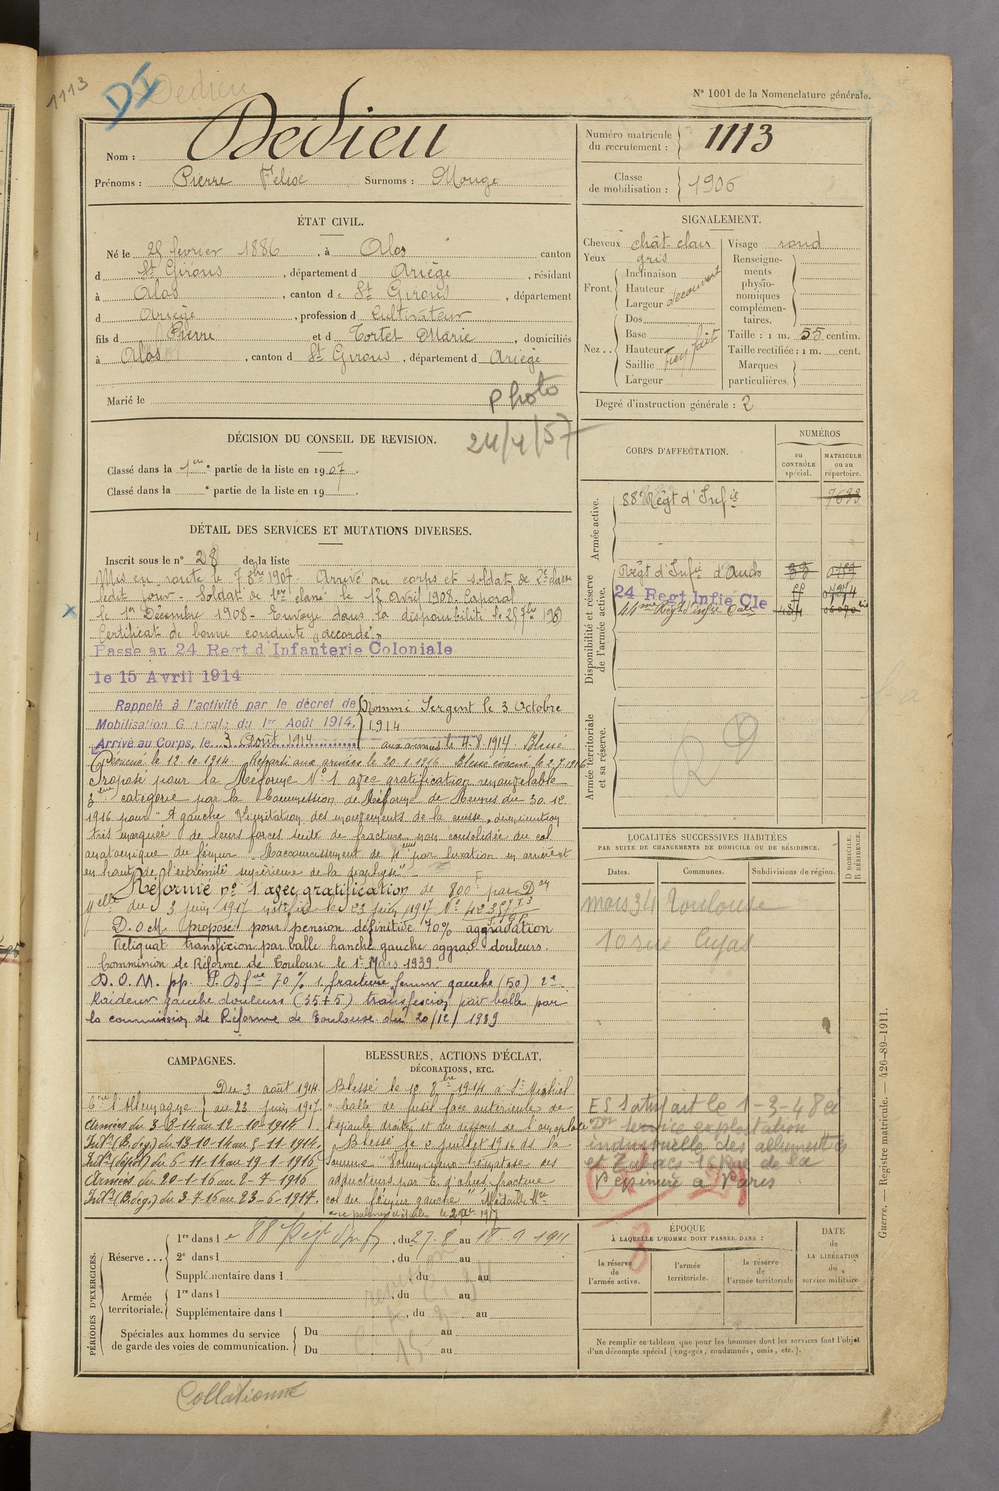 1113
DI
Dedieu
N° 1001 de la Nomenclature générale.
Nom : Dedieu
Prénoms : Pierre Felix Surnoms : Mouge
Numéro matricule du recrutement : 1113
Classe de mobilisation : 1906
ÉTAT CIVIL.
Né le 25 février 1886, à Alos canton
d St Girons, département d Ariège, résidant
à Alos, canton de St Girons, département
d Ariège, profession d cultivateur
fils d Pierre et d Tortet Marie, domiciliés
à Alos, canton d St Girons, département d Ariège
Marié le
Photo
24/4/57
SIGNALEMENT.
Cheveux chât clair
Yeux gris
Front. Inclinaison
Hauteur
Largeur
découvert
Nez.. Dos
Base
Hauteur
Saillie
Largeur
Visage rond
Renseignements physionomiques complémentaires.
Taille : 1 m. 55 centim.
Taille rectifiée : 1 m. cent.
Marques particulières.
Degré d'instruction générale : 2
DÉCISION DU CONSEIL DE REVISION.
Classé dans la 1re partie de la liste en 1907.
Classé dans la e partie de la liste en 19 .
CORPS D'AFFECTATION.
NUMÉROS
au CONTRÔLE spécial.
MATRICULE ou au répertoire.
Armée active.
88e Régt d'Infie 7633
Disponibilité et réserve de l'armée active.
Régt d'Infie d'Auch
24 Regt Infie Cle
Armée territoriale et sa réserve.
DÉTAIL DES SERVICES ET MUTATIONS DIVERSES.
Inscrit sous le n° 28 de la liste
Mis en route le 7 8bre 1907. Arrivé au corps et soldat de 2e classe
ledit jour. Soldat de 1re classe le 18 avril 1908. Caporal
le 1er Décembre 1908. Envoyé dans la disponibilité le 25 7bre 1909
Certificat de bonne conduite "accordé".
Passé au 24 Regt d'Infanterie Coloniale
le 15 Avril 1914
Rappelé à l'activité par le décret de
Mobilisation Générale du 1er Août 1914.
Arrivé au Corps, le 3 Août 1914
Nommé Sergent le 3 Octobre
1914
aux armées le 4.8.1914. Blessé
Evacué le 12.10.1914. Reparti aux armées le 20.1.1916. Blessé évacué le 2.7.1916
Proposé pour la Réforme N° 1 avec gratification renouvelable
catégorie par la Commission de Réforme de
1916 pour "A gauche limitation des mouvements de la cuisse, diminution
très marquée de leurs forces suite de fracture non consolidée du col
anatomique du fémur. Raccourcissement de par luxation en arrière et
en haut de l'extrémité supérieure de la diaphyse".
Réformé n° 1 avec gratification de 800 F par Don
du 3 juin 1917 notifiée le 23 juin 1917 N°
D.O.M proposé pour pension définitive 70% aggravation
Reliquat transfixion par balle hanche gauche aggrav. douleurs.
Commission de Réforme de Toulouse le 1er Mars 1939.
D.O.M. pp. P. Dfve 70% 1. fracture femur gauche (50) 2°
Raideur gauche douleurs (55+5) transfixion par balle par
la commission de Réforme de Toulouse du 20/12/1939
LOCALITÉS SUCCESSIVES HABITÉES
PAR SUITE DE CHANGEMENTS DE DOMICILE OU DE RÉSIDENCE.
Dates.
Communes.
Subdivisions de région.
D DOMICILE.
R RÉSIDENCE.
mars 34 Toulouse
10 rue Cujas
ES satisfait le 1-3-48 est
service exploitation
industrielle des allumettes
et Tabacs rue de la
Pépinière à Paris
CAMPAGNES.
Du 3 août 1914
Cre l'Allemagne au 23 juin 1917.
Armées du 3-8-14 au 12-10-1914
Intr (B.deg.) du 13-10-14 au 5-11-1914.
Intr (dépôt) du 6-11-14 au 19-1-1916
Armées du 20-1-16 au 2-7-1916
Intr (B.deg.) du 3-7-16 au 23-6-1917.
BLESSURES, ACTIONS D'ÉCLAT, DÉCORATIONS, ETC.
Blessé le 12 8bre 1914 à St Mihiel
"balle de fusil face antérieure de
l'épaule droite et au dessous de l'omoplate"
Blessé le 2 juillet 1916 ds la
Somme "Volumineux hématome des
adducteurs par E. d'obus, fracture
col du fémur gauche". Médaille Mre
PÉRIODES D'EXERCICES.
Réserve... 1re dans le 88e Régt d'Inf, du 27-8 au 18-9-1911
2e dans l , du au
Supplémentaire dans l , du au
Armée territoriale. 1re dans l , du au
Supplémentaire dans l , du au
Spéciales aux hommes du service de garde des voies de communication. Du au
Du au
ÉPOQUE
À LAQUELLE L'HOMME DOIT PASSER DANS :
la réserve de l'armée active.
l'armée territoriale.
la réserve de l'armée territoriale
DATE DE LA LIBÉRATION du service militaire.
Ne remplir ce tableau que pour les hommes dont les services font l'objet
d'un décompte spécial (engagés, condamnés, omis, etc.).
Guerre. — Registre matricule. — 426-89-1911.
Collationné